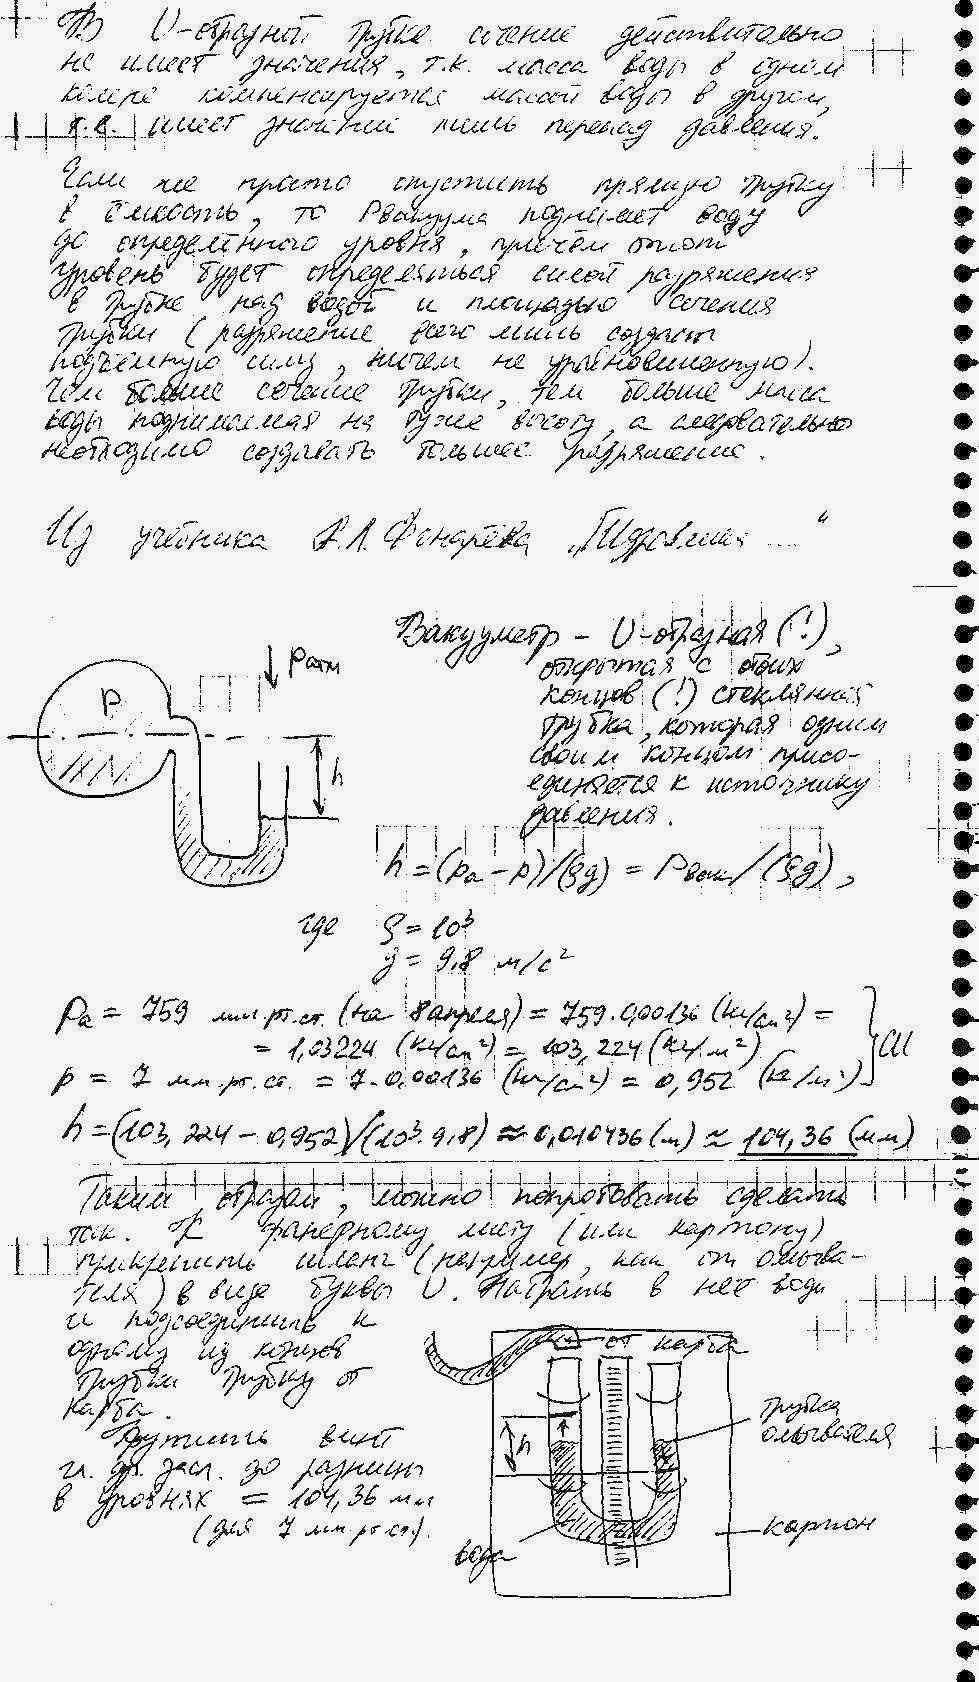 В U-образной трубке сечение действительно
не имеет значения, т.к. масса воды в одном
колене компенсируется массой воды в другом,
т.е. имеет значение лишь перепад давления.
Если же просто опустить прямую трубку
в ёмкость, то Pвакуума поднимет воду
до определённого уровня, причём этот
уровень будет определяться силой разряжения
в трубке над водой и площадью сечения
трубки (разряжение всего лишь создаст
подъёмную силу, ничем не уравновешенную).
Чем больше сечение трубки, тем больше масса
воды поднимаемая на ту же высоту, а следовательно
необходимо создавать большее разряжение.
Из учебника Фонарёва „Гидравлика ..."
Вакууметр - U-образная (!),
открытая с обоих
концов (!) стеклянная
трубка, которая одним
своим концом присо-
единяется к источнику
давления.
P
Pатм
h
h = (pa - p)/(ρg) = Pвак/(ρg),
где ρ = 10³
g = 9,8 м/с²
Pa = 759 мм.рт.ст. (на 8 апреля) = 759·0,00136 (кг/см²) =
= 1,03224 (кг/см²) = 103,224 (кг/м²)
p = 7 мм.рт.ст. = 7·0,00136 (кг/см²) = 0,952 (кг/м²)
СИ
h = (103,224 - 0,952)/(10³·9,8) ≈ 0,010436 (м) ≈ 104,36 (мм)
Таким образом, можно попробовать сделать
так. К фанерному листу (или картону)
прикрепить шланг (например, как от омыва-
теля) в виде буквы U. Набрать в неё воды
и подсоединить к
одному из концов
трубки трубку от
карба.
Крутить винт
др. засл. до разницы
в уровнях = 104,36 мм
(для 7 мм.рт.ст.).
от карба
h
трубка
омывателя
картон
вода